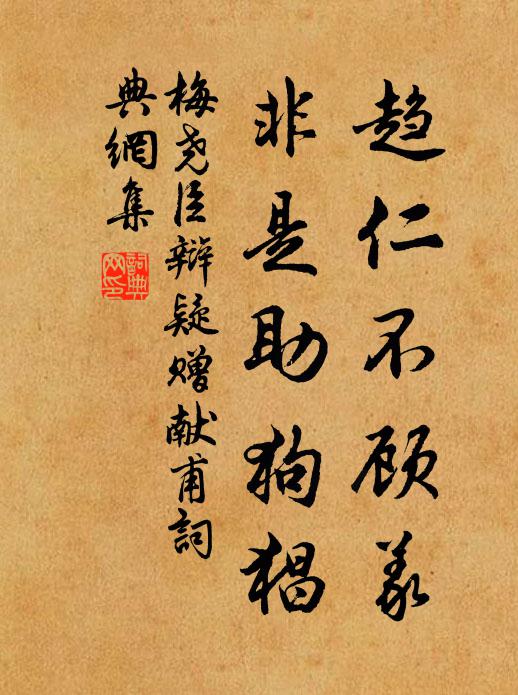 趋仁不顾义
非是助狗猖
梅尧臣辩疑赠献甫詞
典網集
詞典網印